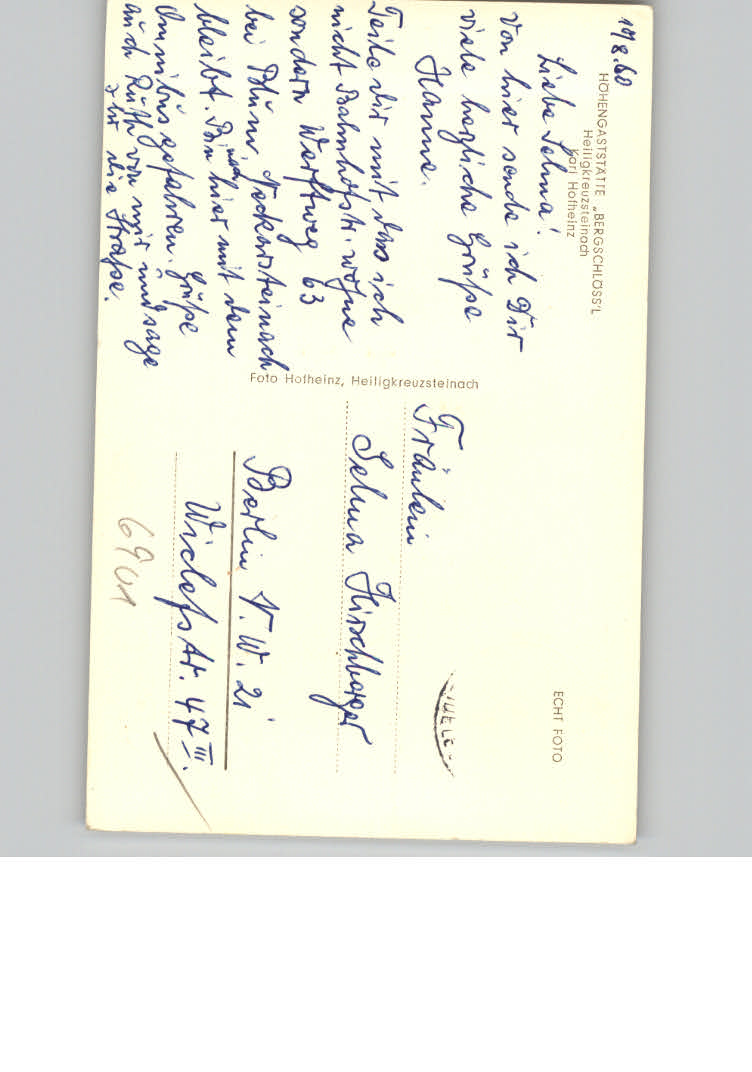 19/8.60
HÖHENGASTSTÄTTE „BERGSCHLÖSS'L
Heiligkreuzsteinach
Karl Hofheinz
Liebe Selma!
Von hier sende ich Dir
viele herzliche Grüße
Hanna.
Teile Dir mit das ich
nicht Bahnhofstr. wohne
sondern Werftweg 63
bei Blum, Neckarsteinach
bleibt. Bin nach hier mit dem
Omnibus gefahren. Grüße
auch Ruth von mir und sage
ihr die Straße.
Foto Hofheinz, Heiligkreuzsteinach
ECHT FOTO
Fräulein
Selma Hirschberger
Berlin N.W. 21
Wiclefstr. 47 III.
6901